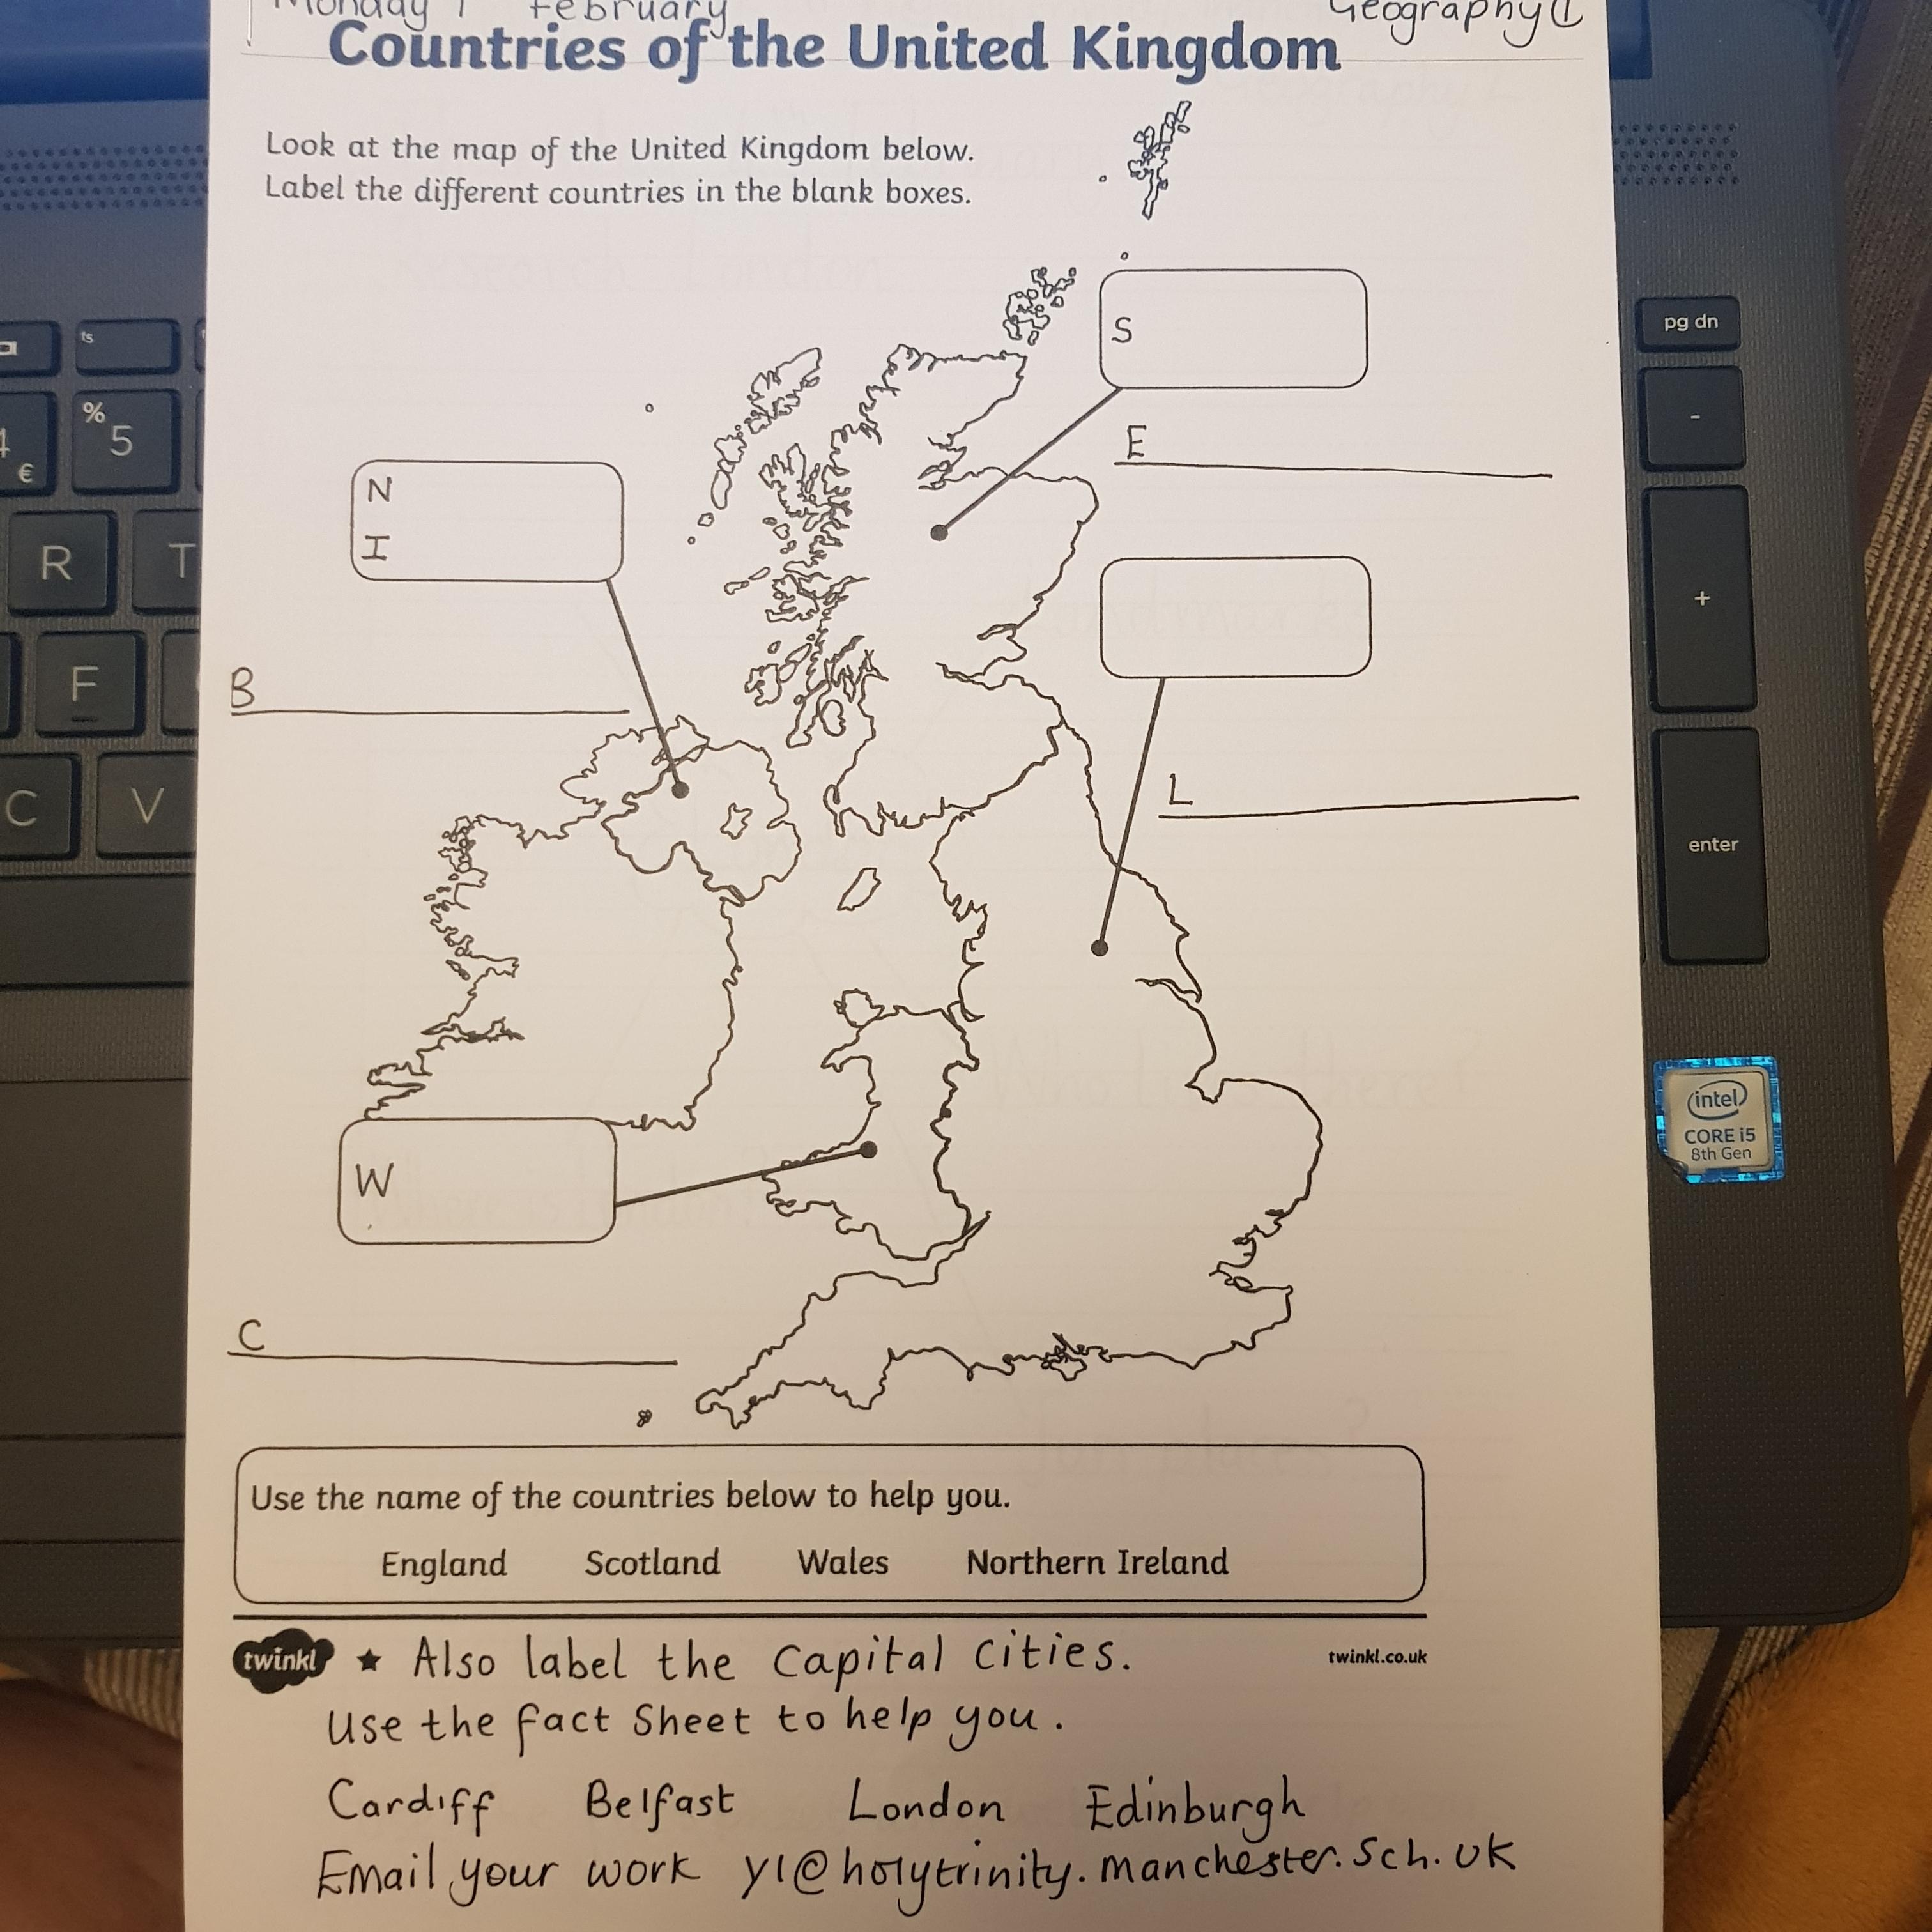 Monday 1 February
Geography 1
Countries of the United Kingdom
Look at the map of the United Kingdom below.
Label the different countries in the blank boxes.
S
E
N
I
B
L
W
C
Use the name of the countries below to help you.
England Scotland Wales Northern Ireland
twinkl ★ Also label the Capital Cities. twinkl.co.uk
Use the fact Sheet to help you.
Cardiff Belfast London Edinburgh
Email your work y1@holytrinity.manchester.sch.uk
ts
% 5
4 €
R T
F
C V
pg dn
-
+
enter
intel
CORE i5
8th Gen